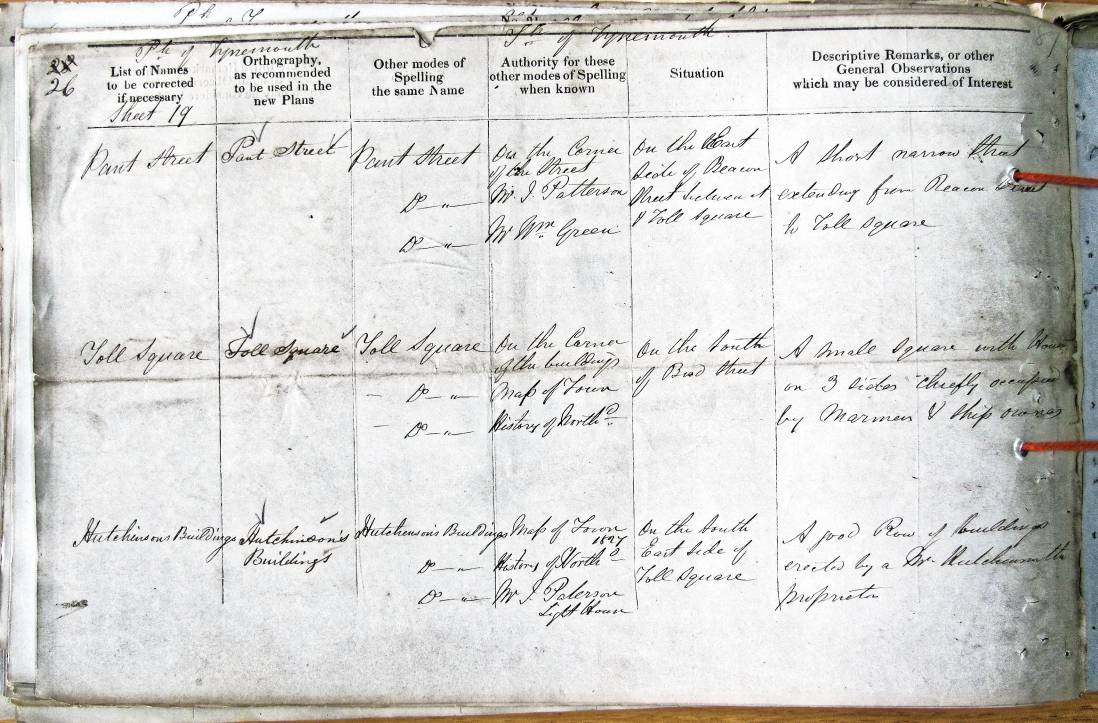 Ph of Tynemouth
Ph of Tynemouth
26
List of Names
to be corrected
if necessary
Orthography,
as recommended
to be used in the
new Plans
Other modes of
Spelling
the same Name
Authority for these
other modes of Spelling
when known
Situation
Descriptive Remarks, or other
General Observations
which may be considered of Interest
Sheet 19
Pant Street
Pant Street
Pant Street
Do "
Do "
On the Corner
of the Street
Mr. J. Patterson
Mr Wm. Green
On the East
side of Beacon
Street between it
& Toll Square
A short narrow Street
extending from Beacon Street
to Toll Square
Toll Square
Toll Square
Toll Square
Do "
Do "
On the Corner
of the buildings
Map of Town
History of Northd.
On the South
of Bird Street
A small square with Houses
on 3 sides chiefly occupied
by Mariners & Ship owners
Hutchinsons Buildings
Hutchinson's
Buildings
Hutchinsons Buildings
Do "
Do "
Map of Town
1827
History of Northd
Mr J. Paterson
Light House
On the South
East side of
Toll Square
A good Row of buildings
erected by a Mr Hutchinson the
proprietor